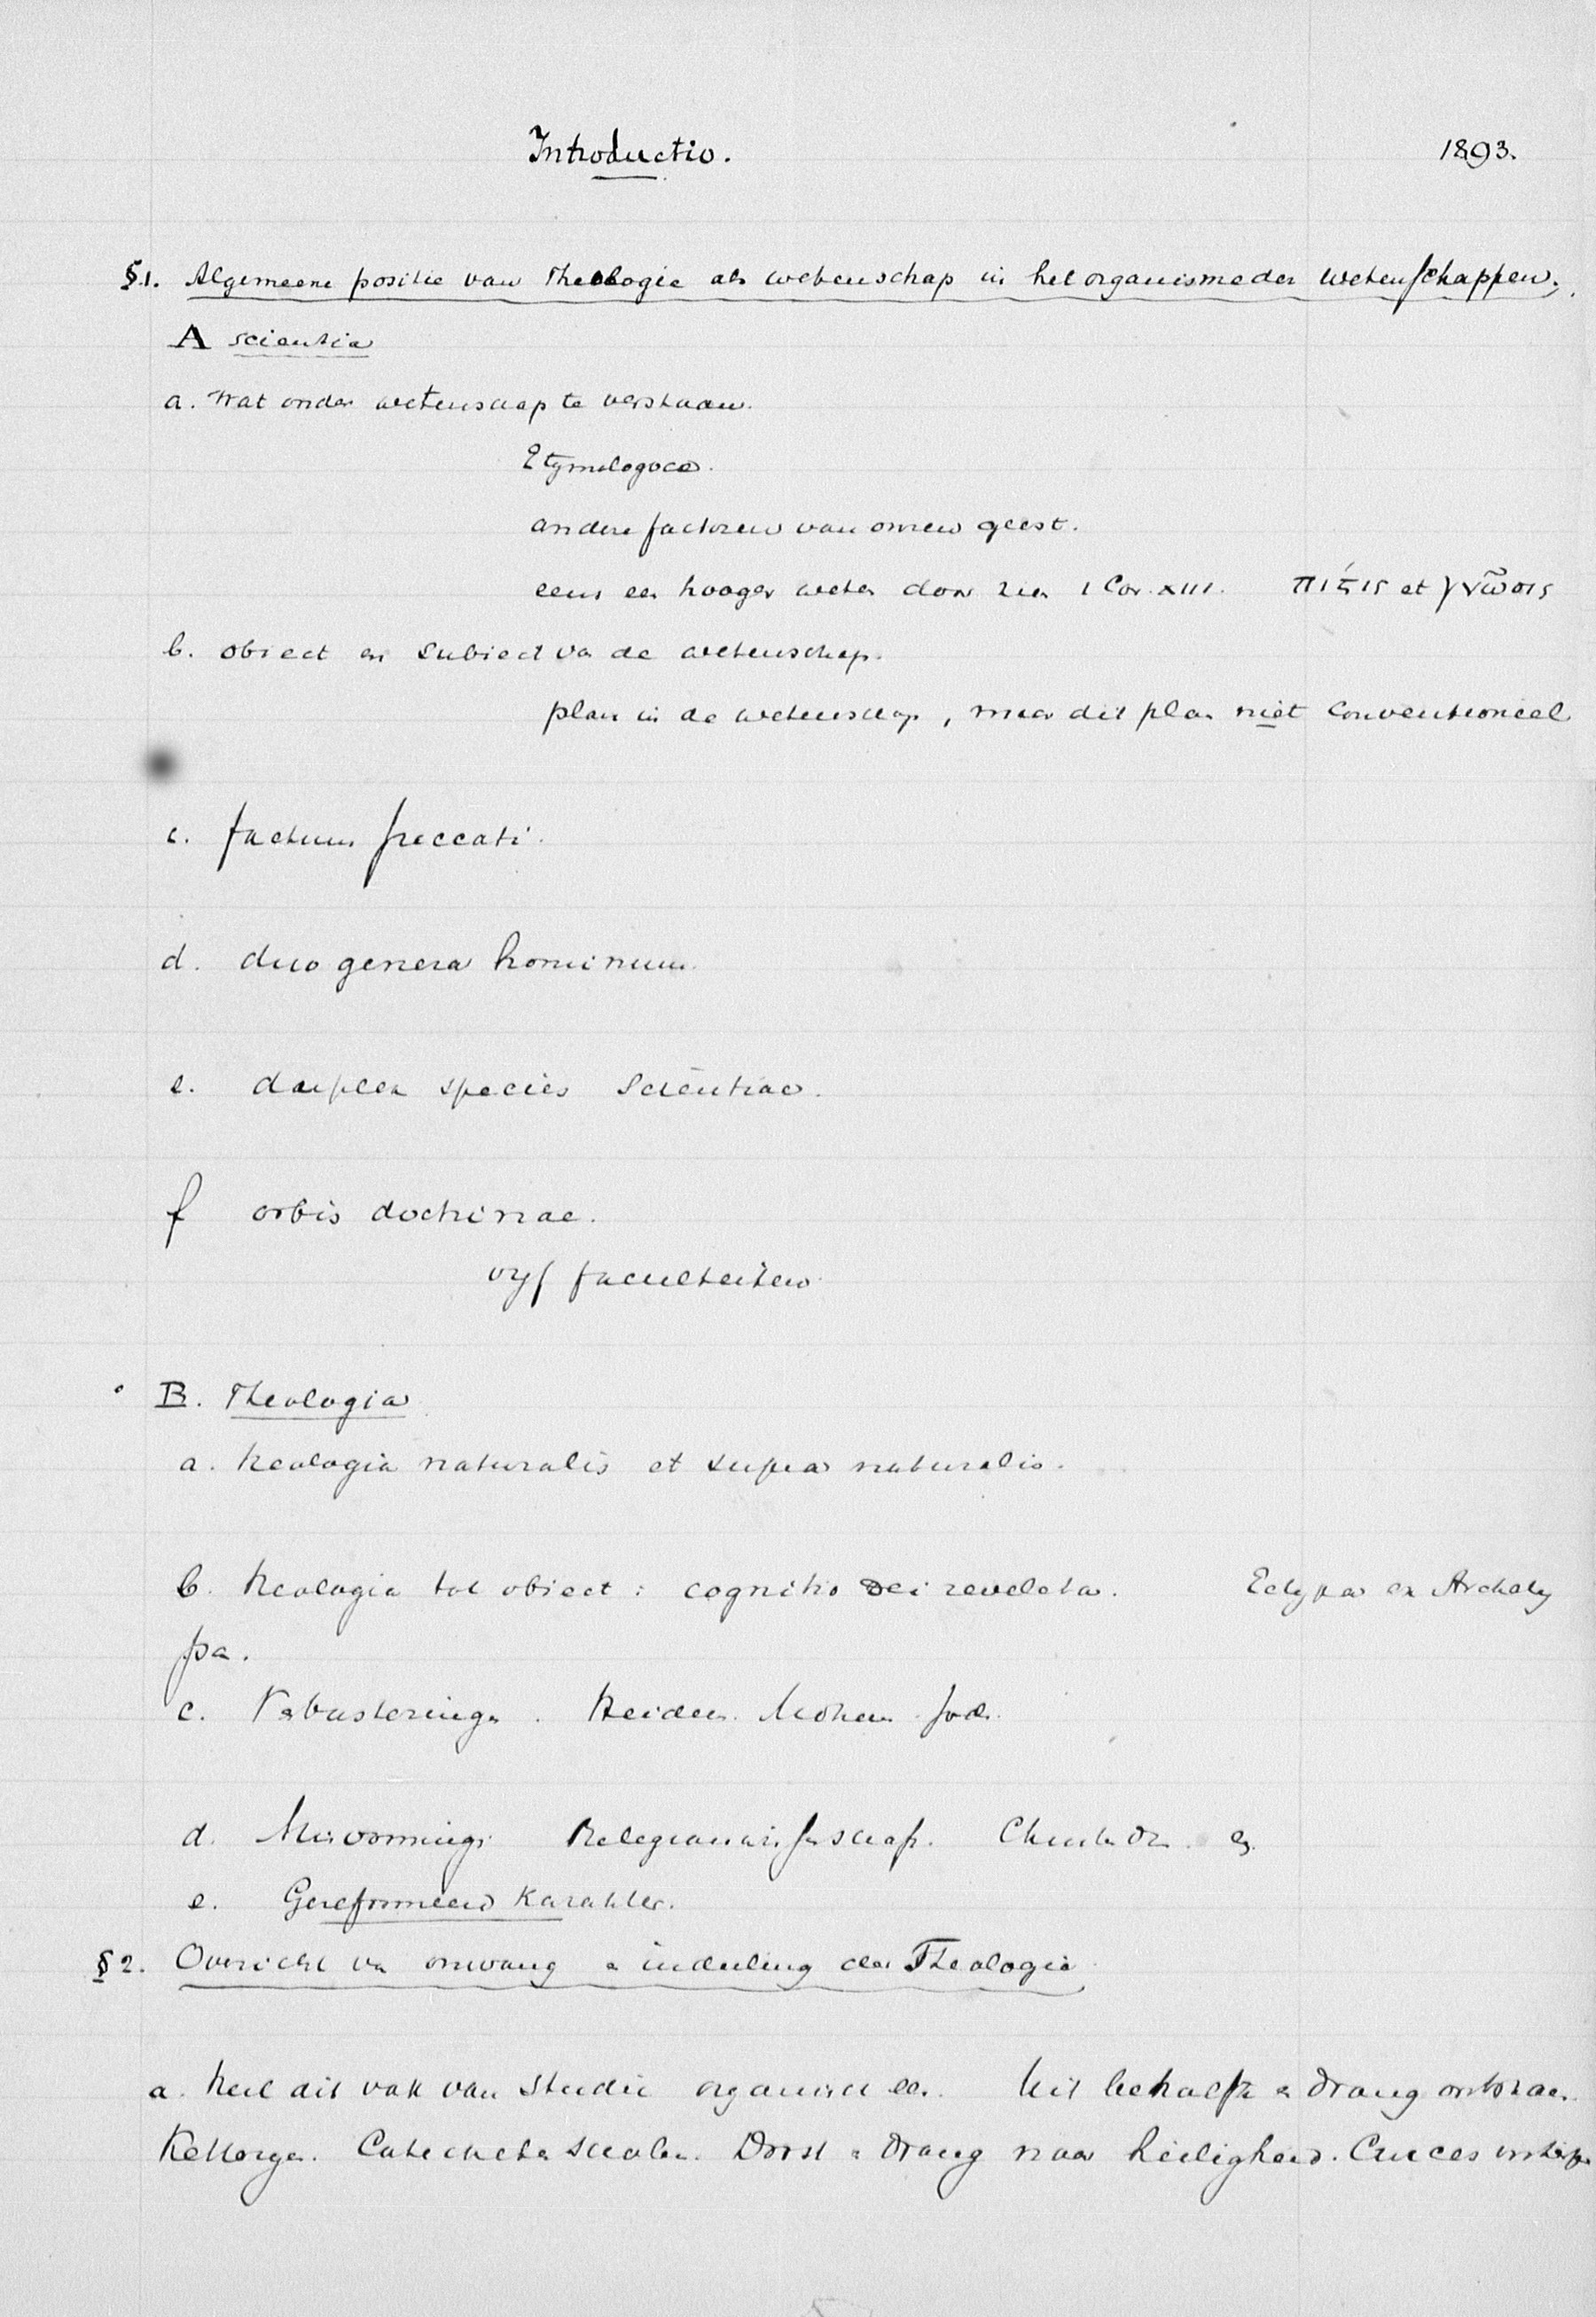 Introductio. 1893.
§1. Algemeene positie van Theologie als wetenschap in het organisme der wetenschappen.
A scientia
a. Wat onder wetenschap te verstaan.
Etymologoce.
andere factoren van onzen geest.
eens een hooger weten door zien 1 Cor. XIII. πίϛις et γνῶσις
b. obiect en subiect va de wetenschap.
plan in de wetenschap, maar dit plan niet conventioneel
c. factum peccati.
d. duo genera hominum.
e. duplex species scientiae.
f orbis doctrinae.
vijf faculteiten
B. Theologia
a. theologia naturalis et supra naturalis.
b. theologia tot obiect: cognitio Dei revelata. Ectypa en Archety
pa.
c. Verbasteringen. Heiden. Moham. Jod.
d. Misvorming. Religionswissenschaft.
e. Gereformeerd Karakter.
§2. Overzicht va omvang en indeeling der Theologie
a. Heel dit vak van studie organisch een. Uit behoefte en drang ontstaan.
Ketterijen. Catecheten scholen. Dorst en drang naar heiligheid. Cruces